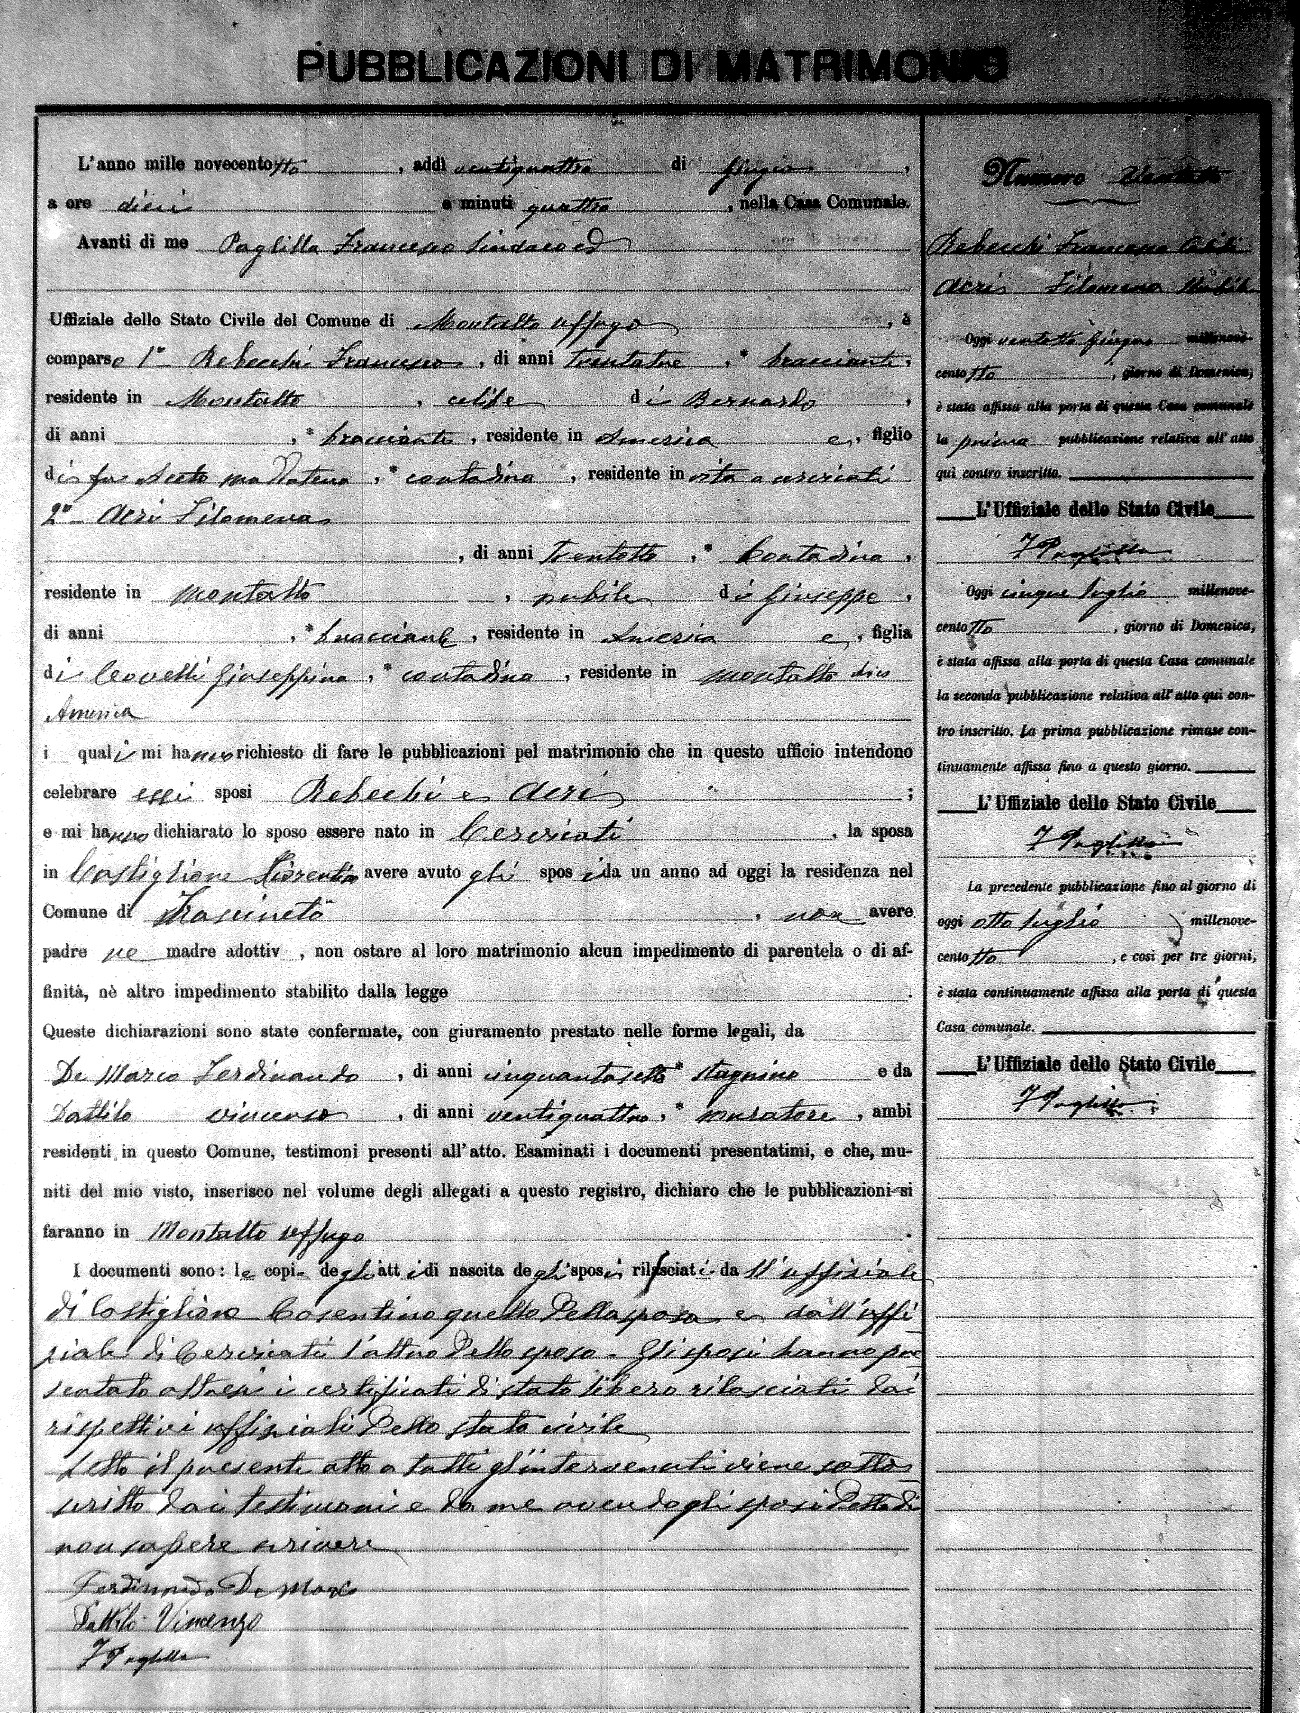 PUBBLICAZIONI DI MATRIMONIO
L'anno mille novecento otto, addì ventiquattro di giugno,
a ore dieci e minuti quattro, nella Casa Comunale.
Avanti di me Paglilla Francesco Sindaco ed
Uffiziale dello Stato Civile del Comune di Montalto Uffugo, è
comparso 1° Rebecchi Francesco, di anni trentatre, * bracciante,
residente in Montalto, celibe di Bernardo,
di anni , * bracciante, residente in America e, figlio
di fu Maddalena, * contadina, residente in vita a Cerisciati
2° Acri Filomena
, di anni trentotto, * Contadina,
residente in Montalto, nubile di Giuseppe,
di anni , * bracciante, residente in America e, figlia
di Covelli Giuseppina, * contadina, residente in Montalto dico
America
i quali mi hanno richiesto di fare le pubblicazioni pel matrimonio che in questo ufficio intendono
celebrare essi sposi Rebecchi e Acri ;
e mi hanno dichiarato lo sposo essere nato in Cerisciati, la sposa
in Castiglione Cosentino avere avuto gli sposi da un anno ad oggi la residenza nel
Comune di Frascineto, non avere
padre ne madre adottiv , non ostare al loro matrimonio alcun impedimento di parentela o di af-
finità, nè altro impedimento stabilito dalla legge .
Queste dichiarazioni sono state confermate, con giuramento prestato nelle forme legali, da
De Marco Ferdinando, di anni cinquantasette * stagnino e da
Dattilo Vincenzo, di anni ventiquattro, * muratore, ambi
residenti in questo Comune, testimoni presenti all'atto. Esaminati i documenti presentatimi, e che, mu-
niti del mio visto, inserisco nel volume degli allegati a questo registro, dichiaro che le pubblicazioni si
faranno in Montalto Uffugo .
I documenti sono: le copie degli atti di nascita degli sposi rilasciati da ll'uffiziale
di Castiglione Cosentino quello della sposa e dall'uffi
ziale di Cerisciati l'altro dello sposo - Gli sposi hanno pre
sentato altresì i certificati di stato libero rilasciati dai
rispettivi uffiziali dello stato civile
Letto il presente atto a tutti gl'intervenuti viene sotto
scritto dai testimoni e da me avendo gli sposi detto di
non sapere scrivere
Ferdinando De Marco
Dattilo Vincenzo
F Paglilla
Numero Ventotto
Rebecchi Francesco Celibe
Acri Filomena Nubile
Oggi ventotto giugno millenove-
cento otto, giorno di Domenica,
è stata affissa alla porta di questa Casa comunale
la prima pubblicazione relativa all'atto
qui contro inscritto.
L'Uffiziale dello Stato Civile
F Paglilla
Oggi cinque luglio millenove-
cento otto, giorno di Domenica,
è stata affissa alla porta di questa Casa comunale
la seconda pubblicazione relativa all'atto qui con-
tro inscritto. La prima pubblicazione rimase con-
tinuamente affissa fino a questo giorno.
L'Uffiziale dello Stato Civile
F Paglilla
La precedente pubblicazione fino al giorno di
oggi otto luglio millenove-
cento otto, e così per tre giorni,
è stata continuamente affissa alla porta di questa
Casa comunale.
L'Uffiziale dello Stato Civile
F Paglilla